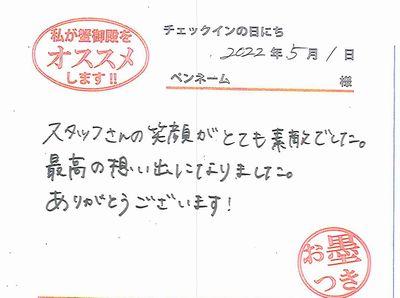 私が蟹御殿を
オススメ
します!!
チェックインの日にち
2022年5月1日
ペンネーム 様
スタッフさんの笑顔がとても素敵でした。
最高の想い出になりました。
ありがとうございます!
お墨
つき